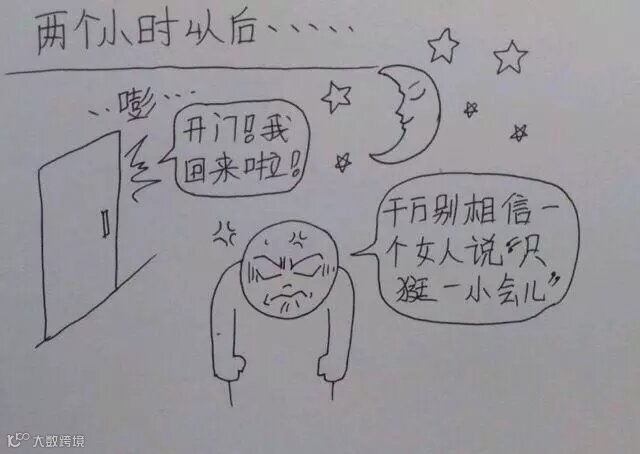 两个小时以后、、、、、
..嘭...
开门!我
回来啦!
千万别相信一
个女人说"只
逛一小会儿"
大数跨境